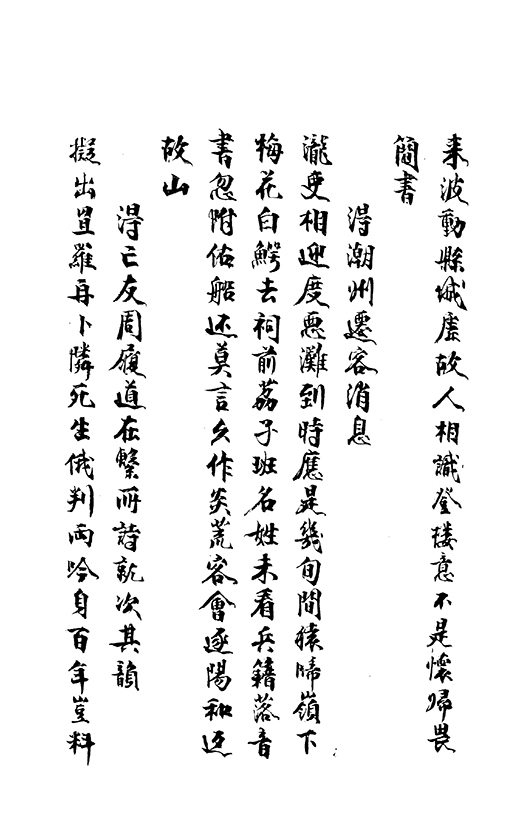 来波動縣城虛故人相識登樓意不是懷歸畏
簡書
得潮州遷客消息
瀧吏相迎度惡灘到時應是幾旬間猿啼嶺下
梅花白鰐去祠前荔子班名姓未看兵籍落音
書忽附估船还莫言久作炎荒客會逐陽和返
故山
得亡友周履道在繫所詩就次其韻
擬出罝羅再卜隣死生俄判兩吟身百年豈料